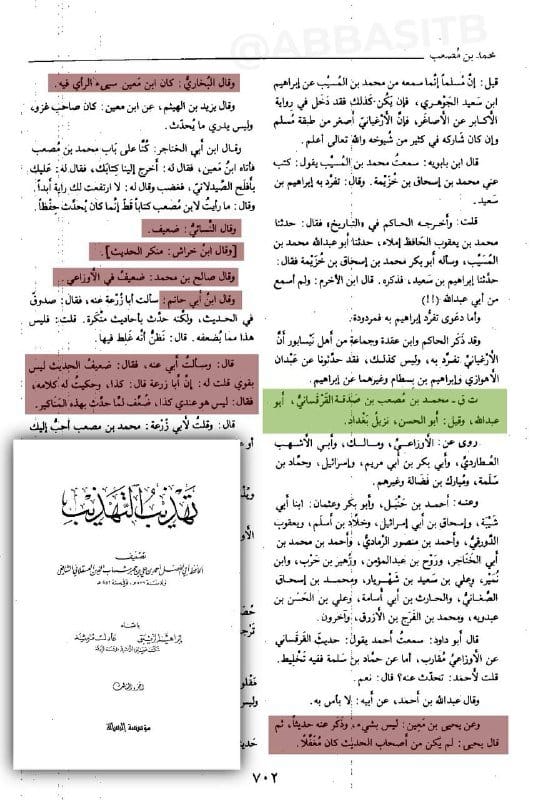 @ABBASITB
محمد بن مُصعب
قيل: إنَّ مُسلماً إنَّما سمعه من محمد بن المُسَيَّب عن إبراهيم
ابن سَعيد الجَوْهري، فإن يكُن كذلك فقد دَخَل في رواية
الأكابر عن الأصاغر، فإنَّ الأرغِيانيَّ أصغر من طبقة مُسلم
وإن كان شاركه في كثير من شيوخه والله تعالى أعلم.
قال ابن بابويه: سمعتُ محمد بن المُسيَّب يقول: كتب
عني محمد بن إسحاق بن خُزَيمة. وقال: تفرَّد به إبراهيم بن
سَعيد.
قلت: وأخرجه الحاكم في «التاريخ» فقال: حدثنا
محمد بن يعقوب الحافظ إملاء، حدثنا أبو عبدالله محمد بن
المُسَيَّب، وسأله أبو بكر محمد بن إسحاق بن خُزيمة فقال:
حدَّثنا إبراهيم بن سَعيد، فذكره. قال ابن الأخرم: ولم أسمع
من أبي عبدالله (!!)
وأما دعوى تفرُّد إبراهيم به فمردودة.
وقد ذَكَر الحاكم وابن عقدة وجماعة من أهل نَيسابور أنَّ
الأرْغِيانيَّ تفرَّد به، وليس كذلك، فقد حدَّثونا عن عَبْدان
الأهوازي وإبراهيم بن بِسطام وغيرهما عن إبراهيم.
ت ق ـ محمد بن مُصعب بن صَدَقة القَرْقَسانيُّ، أبو
عبدالله، وقيل: أبو الحسن، نزيلُ بَغْداد.
روى عن: الأوزاعيِّ، ومالك، وأبي الأشهب
العُطاردِيِّ، وأبي بكر بن أبي مريم، وإسرائيل، وحمَّاد بن
سَلمة، ومُبارك بن فَضالة وغيرهم.
وعنه: أحمد بن حَنْبل، وأبو بكر وعثمان: ابنا أبي
شَيْبَة، وإسحاق بن أبي إسرائيل، وخلَّاد بن أسلم، ويعقوب
الدَّورقيُّ، وأحمد بن منصور الرَّماديُّ، وأحمد بن محمد بن
أبي الخَناجر، ورَوْح بن عبدالمؤمن، وزُهير بن حَرْب، وابن
نُمَيْر، وعلي بن سَعيد بن شَهْريار، ومحمد بن إسحاق
الصَّغاني، والحارث بن أبي أسامة، وعلي بن الحَسَن بن
عبدويه، ومحمد بن الفَرَج بن الأزرق، وآخرون.
قال أبو داود: سمعتُ أحمد يقول: حديثُ القَرْقَساني
عن الأوزاعيِّ مُقارب، أما عن حمَّاد بن سَلمة ففيه تَخْليط.
قلت لأحمد: تحدِّث عنه؟ قال: نعم.
وقال عبدالله بن أحمد، عن أبيه: لا بأس به.
وعن يحيى بن مَعين: ليس بشيء، وذَكَر عنه حديثاً، ثم
قال يحيى: لم يكن من أصحاب الحديث كان مُغَفَّلاً.
وقال البُخاريُّ: كان ابن مَعين سيىء الرأي فيه.
وقال يزيد بن الهَيثم، عن ابن معين: كان صاحب غزو،
وليس يدري ما يُحدِّث.
وقال ابن أبي الخناجر: كُنَّا على بَاب محمد بن مُصعب
فأتاه ابنُ مَعين، فقال له: أخرج إلينا كتابَك، فقال له: عليك
بأفلح الصَّيدلانيِّ، فغضب وقال له: لا ارتفعت لك راية أبداً.
وقال: ما رأيتُ لابن مُصعب كتاباً قطُّ إنَّما كان يُحدِّث حِفْظاً.
وقال النَّسائيُّ: ضعيف.
[وقال ابنُ خِراش: منكر الحديث].
وقال صالح بن محمد: ضعيفٌ في الأوزاعي.
وقال ابنُ أبي حاتم: سألتُ أبا زُرْعة عنه، فقال: صدوقٌ
في الحديث، ولكنَّه حدَّث بأحاديث مُنْكَرة. قلت: فليس
هذا مما يُضعِّفه. قال: نَظُنُّ أنَّه غلط فيها.
قال: وسألتُ أبي عنه، فقال: ضعيفُ الحديث ليس
بقوي قلت له: إنَّ أبا زرعة قال: كذا، وحكيتُ له كلامه،
فقال: ليس هو عندي كذا، ضُعِّف لمَّا حدَّث بهذه المناكير.
قال: وقلتُ لأبي زُرْعة: محمد بن مصعب أحبُّ إليك
تهذيب التهذيب
تصنيف
باعتناء
إبراهيم الزيبق
عادل مرشد
مؤسسة الرسالة
٧٠٢